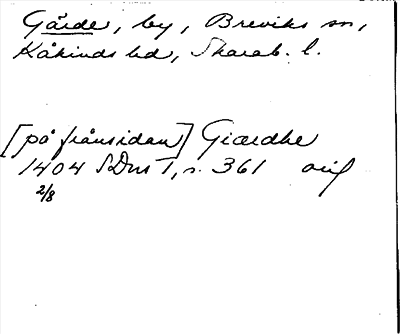 Gärde, by, Breviks sn,
Kåkinds hd, Skarab. l.
[på frånsidan] Giærdhe
1404 SDns I, s. 361 orig
2/8